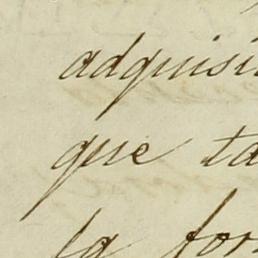 adquisi
que ta
la for